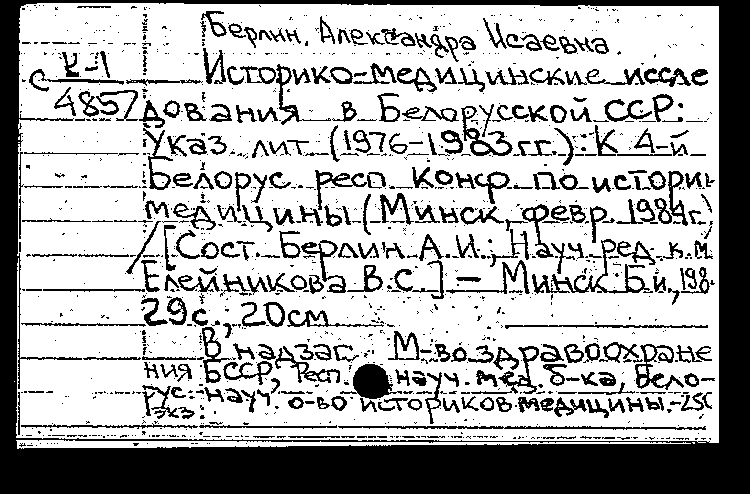 Берлин, Александра Исаевна.
К-1
Историко-медицинские иссле
с
4857
дования в Белорусской ССР:
Указ. лит. (1976-1983гг.): К 4-й
Белорус. респ. конф. по истории
медицины (Минск, февр. 1984г.)
/ [Сост. Берлин А.И.; Науч. ред. к.м.
Елейникова В.С.] — Минск: Б.и., 198
29с.; 20см
В надзаг. М-во здравоохране
ния БССР, Респ. науч. мед. б-ка, Бело-
рус. науч. о-во историков медицины.-250
1экз.